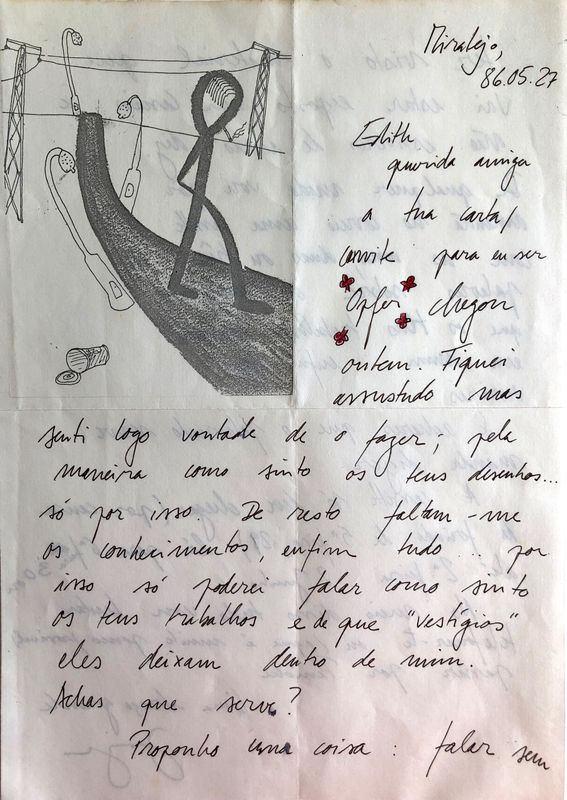 Miratejo,
86.05.27
Edith
querida amiga
a tua carta/
convite para eu ser
Opfer chegou
ontem. Fiquei
assustado mas
senti logo vontade de o fazer; pela
maneira como sinto os teus desenhos...
só por isso. De resto faltam-me
os conhecimentos, enfim tudo... por
isso só poderei falar como sinto
os teus trabalhos e de que "vestígios"
eles deixam dentro de mim.
Achas que serve?
Proponho uma coisa: falar sem